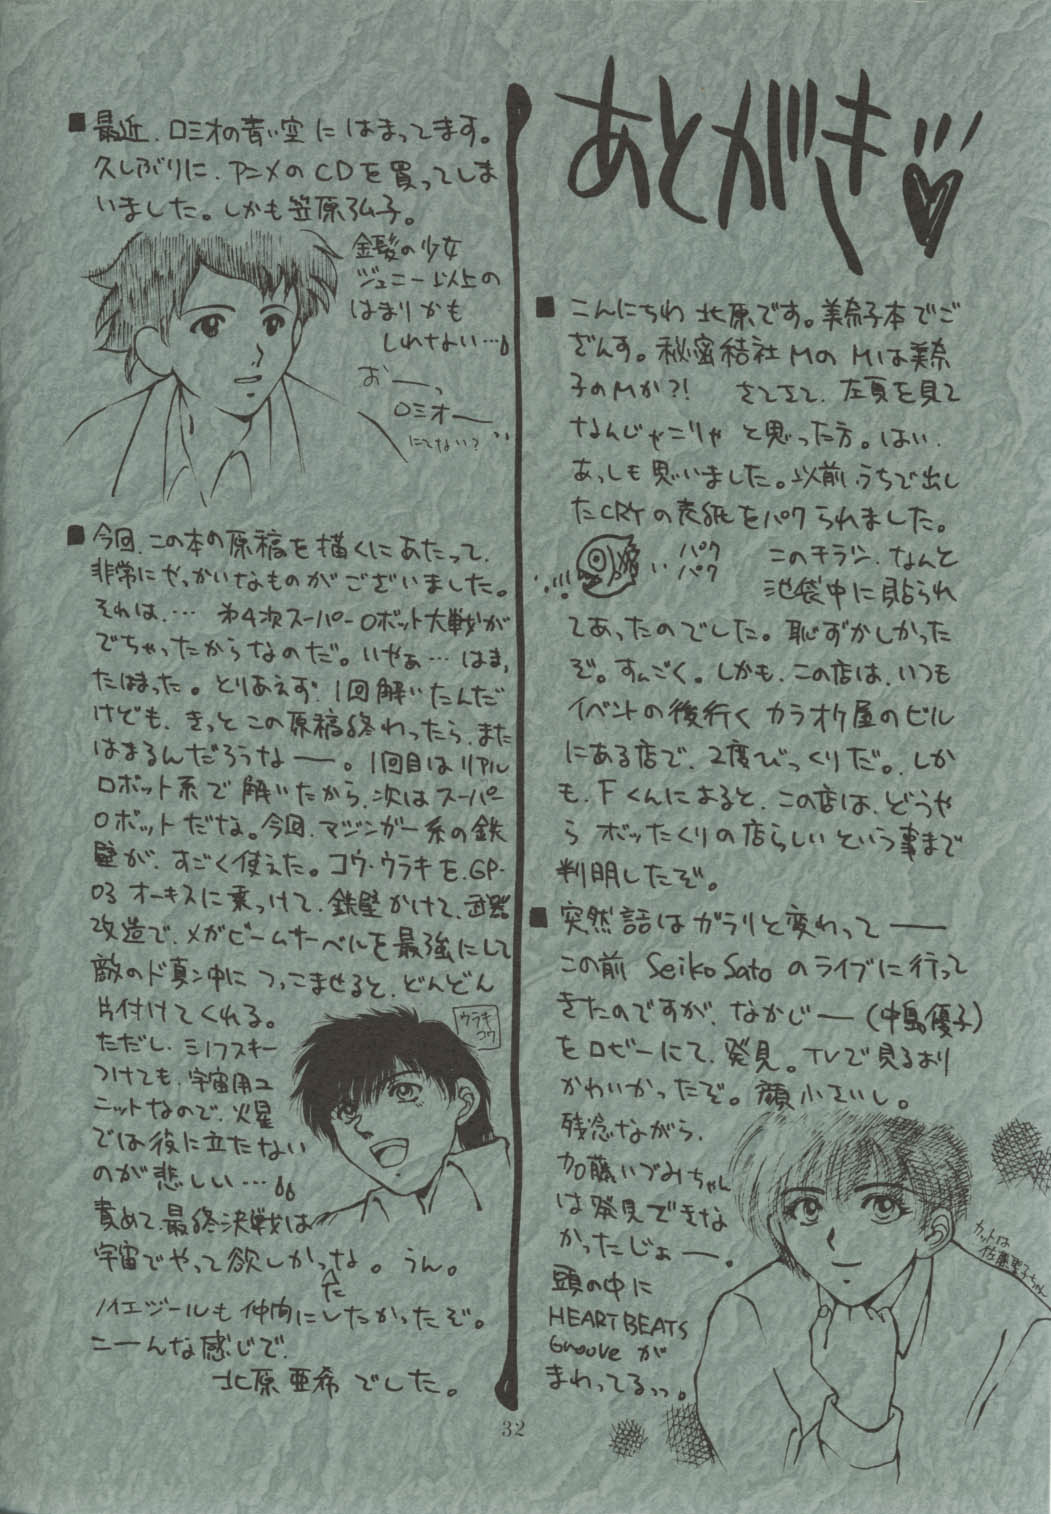 あとがき♡
■こんにちわ 北原です。美奈子本でご
ざんす。秘密結社MのMは美奈
子のMか?! さてさて、左頁を見て
なんじゃこりゃ と思った方。はい、
あっしも思いました。以前うちで出し
たCRYの表紙をパクられました。
パク
パク
このチラシ、なんと
池袋中に貼られ
てあったのでした。恥ずかしかった
ぞ。すんごく。しかも、この店は、いつも
イベントの後行く カラオケ屋のビル
にある店で、2度びっくりだ。しか
も、Fくんによると、この店は、どうや
ら ボッたくりの店らしいという事まで
判明したぞ。
■突然話はガラリと変わって――
この前 Seiko Sato のライブに行って
きたのですが、なかじー(中島優子)
をロビーにて、発見。TVで見るより
かわいかったぞ。顔小さいし。
残念ながら、
加藤いづみちゃん
は発見できな
かったじょー。
頭の中に
HEART BEATS
Groove が
まわってるっっ。
カットは
佐藤聖子ちゃん
■最近、ロミオの青い空にはまってます。
久しぶりに、アニメのCDを買ってしま
いました。しかも笠原弘子。
金髪の少女
ジェニー以上の
はまりかも
しれない…
おーっ
ロミオー
にてない?
■今回、この本の原稿を描くにあたって、
非常にやっかいなものがございました。
それは、… 第4次スーパーロボット大戦が
でちゃったからなのだ。いやぁ… はまっ
たはまった。とりあえず、1回解いたんだ
けども、きっとこの原稿終わったら、また
はまるんだろうなー。1回目はリアル
ロボット系で解いたから、次はスーパー
ロボットだな。今回、マジンガー系の鉄
壁が、すごく使えた。コウ・ウラキを、GP-
03 オーキスに乗っけて、鉄壁かけて、武器
改造で、メガビームサーベルを最強にして
敵のド真ン中に つっこませると、どんどん
片付けてくれる。
ただし、ミノフスキー
つけても、宇宙用ユ
ニットなので、火星
では役に立たない
のが悲しい…
責めて、最終決戦は
宇宙でやって欲しかったな。うん。
ノイエジールも仲間にしたかったぞ。
こーんな感じで、
北原亜希でした。
ウラキ
コウ
32